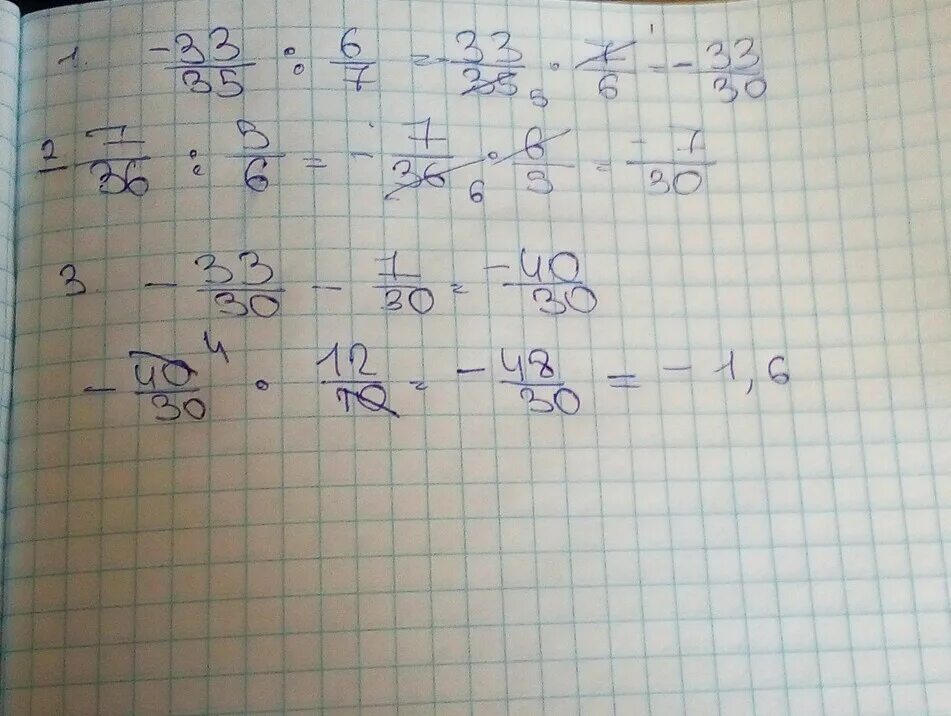 1. -33/35 : 6/7 = -33/35 5 · 7/6 1 = -33/30
2 7/36 : 5/6 = -7/36 6 · 6/5 = -7/30
3. -33/30 - 7/30 = -40/30
-40/30 4 · 12/10 = -48/30 = -1,6